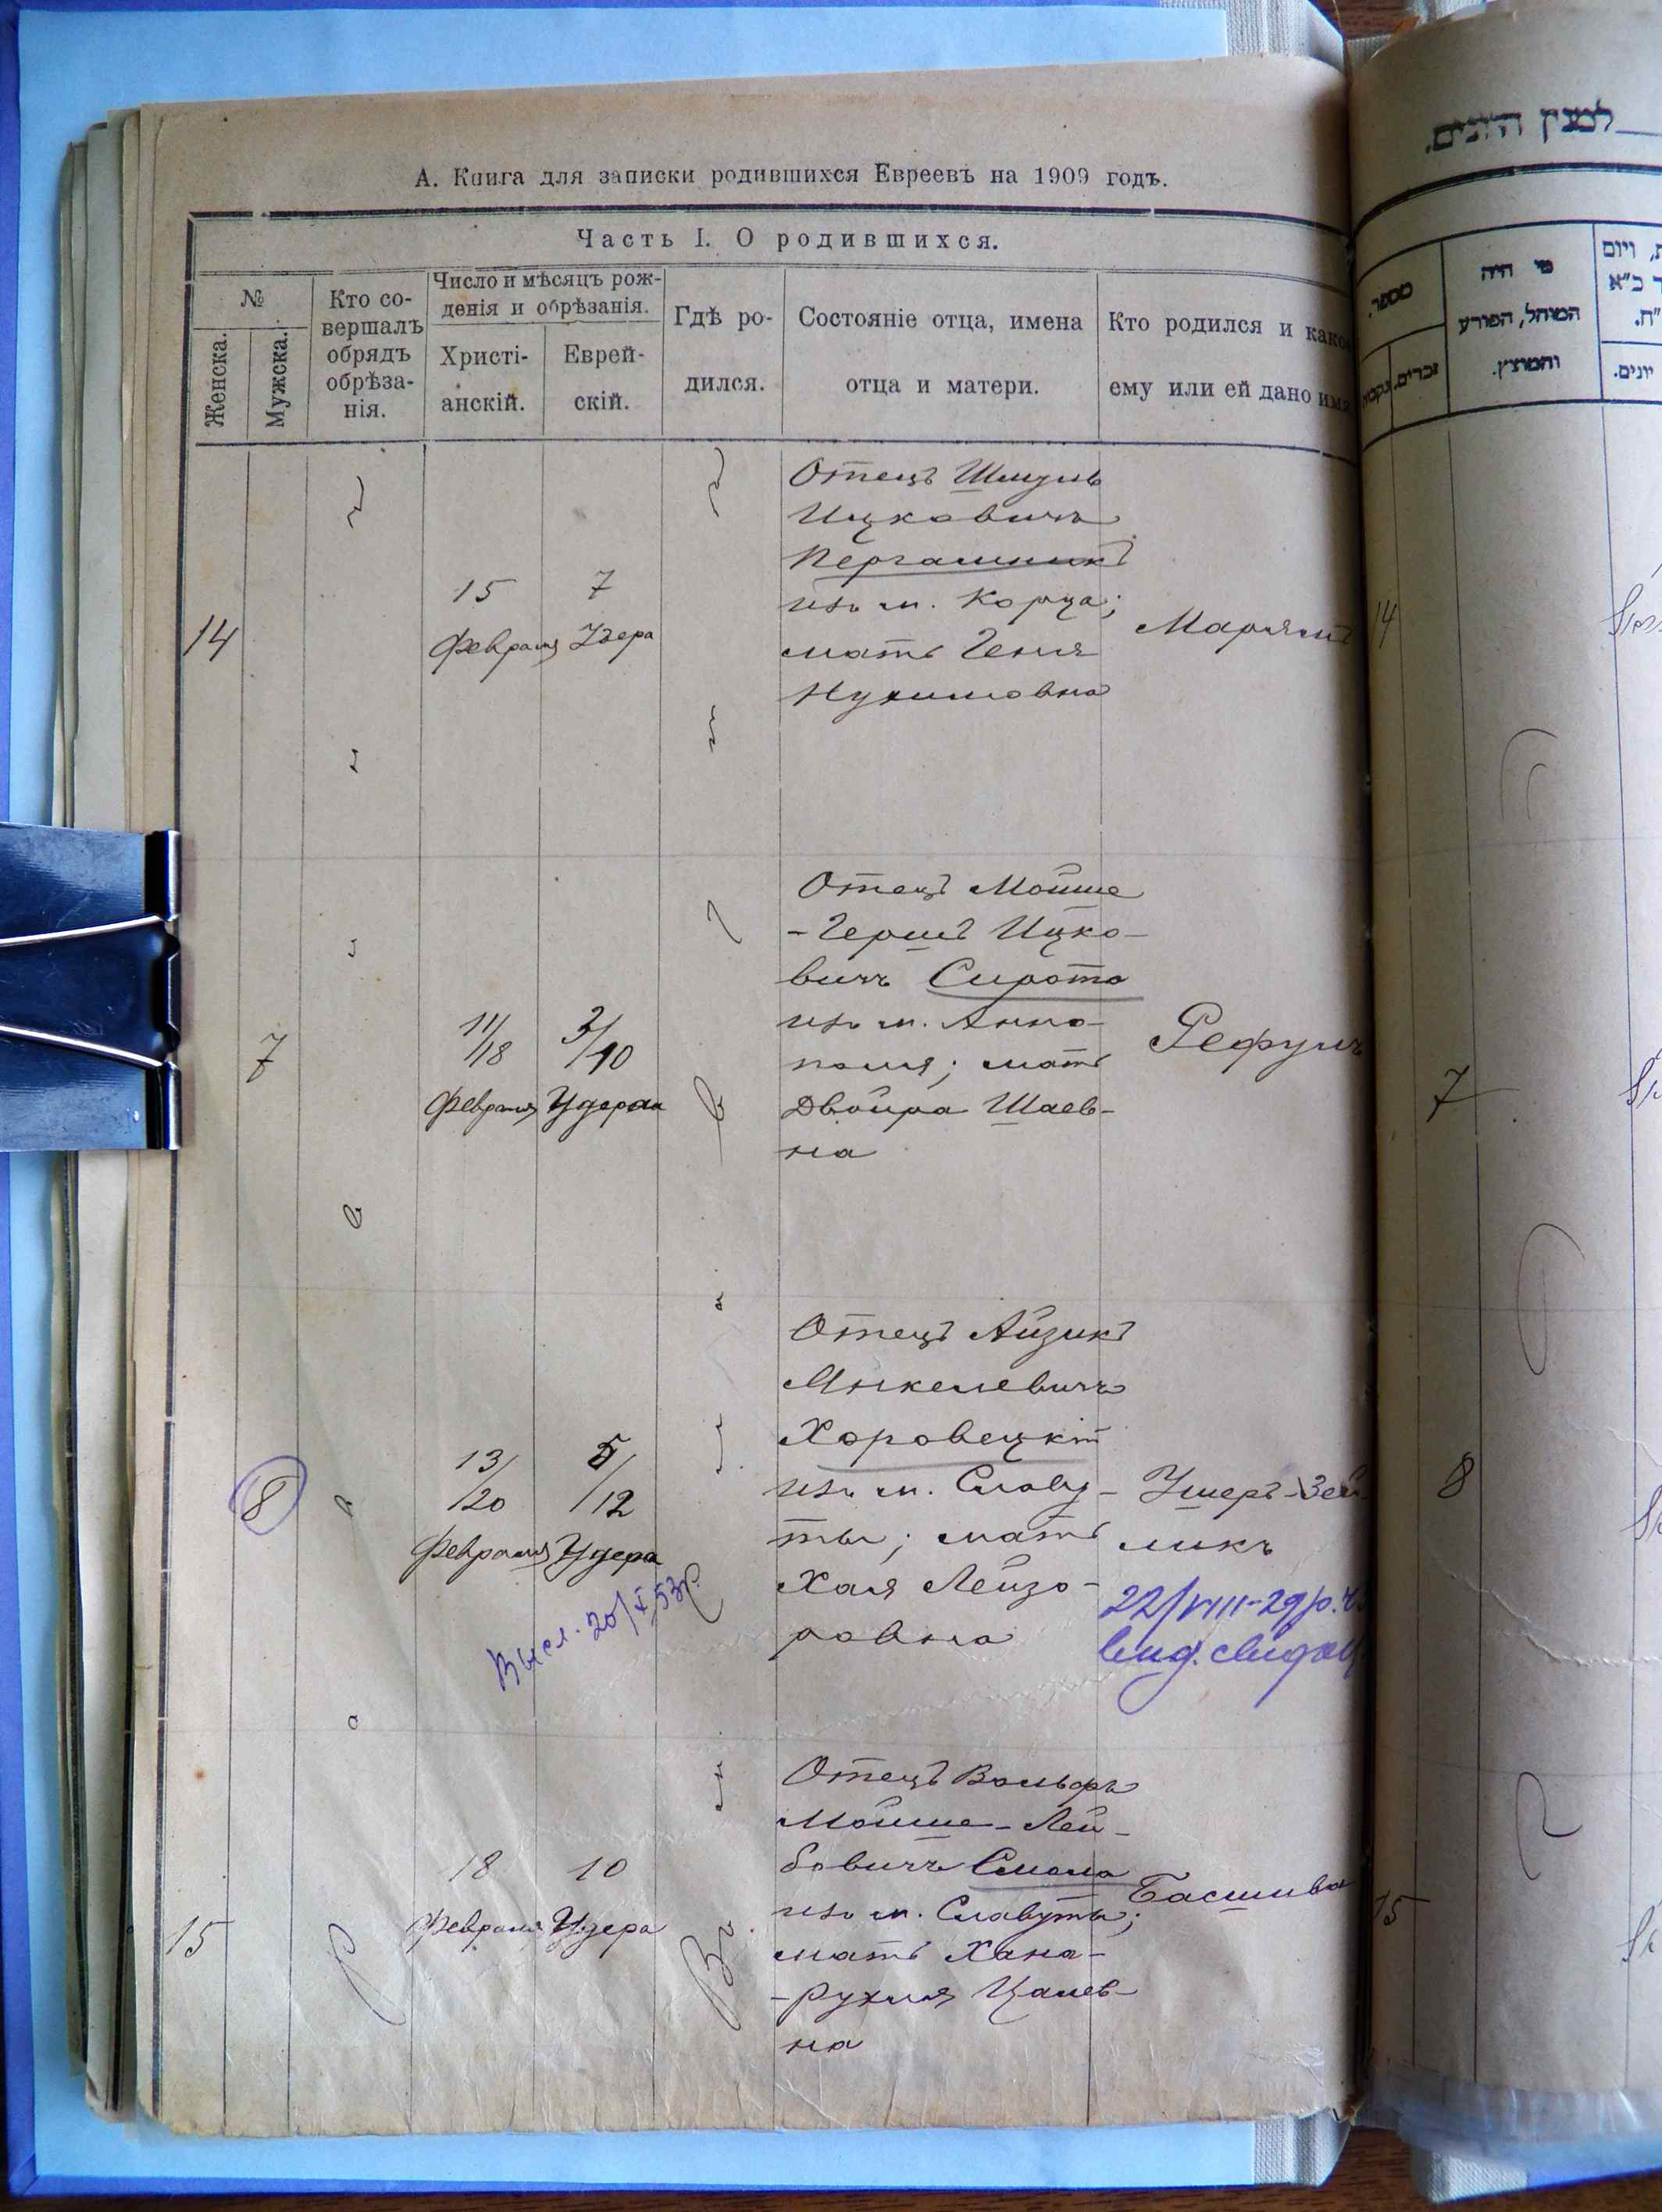 А. Книга для записки родившихся Евреевъ на 1909 годъ.
Часть I. О родившихся.
№
Женска.
Мужска.
Кто со-
вершалъ
обрядъ
обрѣза-
нія.
Число и мѣсяцъ рож-
денія и обрѣзанія.
Христі-
анскій.
Еврей-
скій.
Гдѣ ро-
дился.
Состояніе отца, имена
отца и матери.
Кто родился и како
ему или ей дано имя
14
15
Февраля
7
Отецъ Шмуль
Ицковичъ
Пергаменикъ
изъ м. Корца;
мать Геня
Нухимовна
Марьямъ
7
11/18
Февраля
3/10
Удера
Отецъ Мойше
-Гершъ Ицко-
вичъ Сирота
изъ м. Анно-
поля; мать
Двойра Шаев-
на
Рефулъ
8
13/20
Февраля
5/12
Удера
Отецъ Айзикъ
Янкелевичъ
Хоровецкій
изъ м. Славу-
ты; мать
Хая Лейзо-
ровна
Ушеръ-Зей
ликъ
Высл. 20/X 53р.
22/VIII-29р.
вид. свидоц
15
18
Февраля
10
Удера
Отецъ Вольфъ
Мойше-Лей-
бовичъ Смола
изъ м. Славуты;
мать Хана-
-Рухля Цалев-
на
Басшива
למנין היונים.
מספר.
זכרים.
מי היה
המוהל, הפורע
והמוצץ.
ויום
יונים.
14
7
8
15